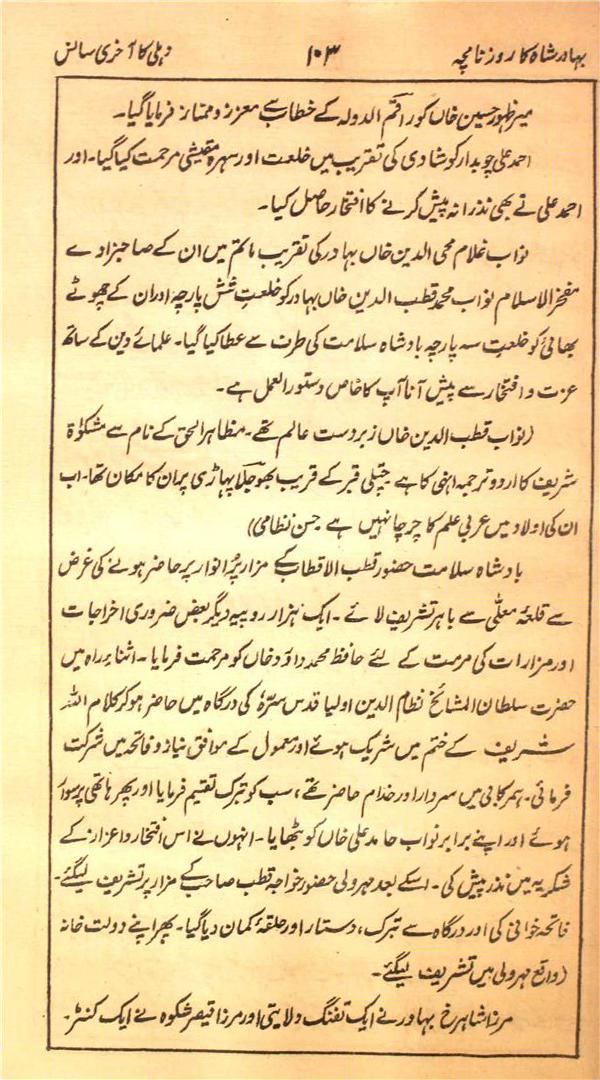 بہادر شاہ کا روزنامچہ ۱۰۳ دہلی کا آخری سانس
میر ظہور حسین خاں کو راقم الدولہ کے خطاب سے معزز و ممتاز فرمایا گیا۔
احمد علی چوبدار کو شادی کی تقریب میں خلعت اور سہرہ مقیشی مرحمت کیا گیا۔ اور
احمد علی نے بھی نذرانہ پیش کرنے کا افتخار حاصل کیا۔
نواب غلام محی الدین خاں بہادر کی تقریب ماتم میں ان کے صاحبزادے
مفخر الاسلام نواب محمد قطب الدین خاں بہادر کو خلعت شش پارچہ اور ان کے چھوٹے
بھائی کو خلعت سہ پارچہ بادشاہ سلامت کی طرف سے عطا کیا گیا۔ علمائے دین کے ساتھ
عزت و افتخار سے پیش آنا آپ کا خاص دستور العمل ہے۔
(نواب قطب الدین خاں زبردست عالم تھے۔ مظاہر الحق کے نام سے مشکوٰۃ
شریف کا اردو ترجمہ انہی کا ہے۔ چتلی قبر کے قریب بھوجلا پہاڑی پر ان کا مکان تھا۔ اب
ان کی اولاد میں عربی علم کا چرچا نہیں ہے حسن نظامی)
بادشاہ سلامت حضور قطب الاقطاب کے مزار پُر انوار پر حاضر ہونے کی غرض
سے قلعۂ معلّٰی سے باہر تشریف لائے۔ ایک ہزار روپیہ دیگر بعض ضروری اخراجات
اور مزارات کی مرمت کے لئے حافظ محمد داؤد خاں کو مرحمت فرمایا۔ اثناء راہ میں
حضرت سلطان المشائخ نظام الدین اولیا قدس سرّہٗ کی درگاہ میں حاضر ہو کر کلام اللہ
شریف کے ختم میں شریک ہوئے اور معمول کے موافق نیاز و فاتحہ میں شرکت
فرمائی۔ ہمرکابی میں سردار اور خدام حاضر تھے، سب کو تبرک تقسیم فرمایا اور پھر ہاتھی پر سوار
ہوئے اور اپنے برابر نواب حامد علی خاں کو بٹھایا۔ انہوں نے اس افتخار و اعزاز کے
شکریہ میں نذر پیش کی۔ اسکے بعد مہرولی حضور خواجہ قطب صاحب کے مزار پر تشریف لیگئے۔
فاتحہ خوانی کی اور درگاہ سے تبرک، دستار اور حلقۂ کمان دیا گیا۔ پھر اپنے دولت خانہ
(واقع مہرولی میں تشریف لیگئے۔
مرزا شاہرخ بہادر نے ایک تفنگ ولایتی اور مرزا قیصر شکوہ نے ایک کنٹر۔